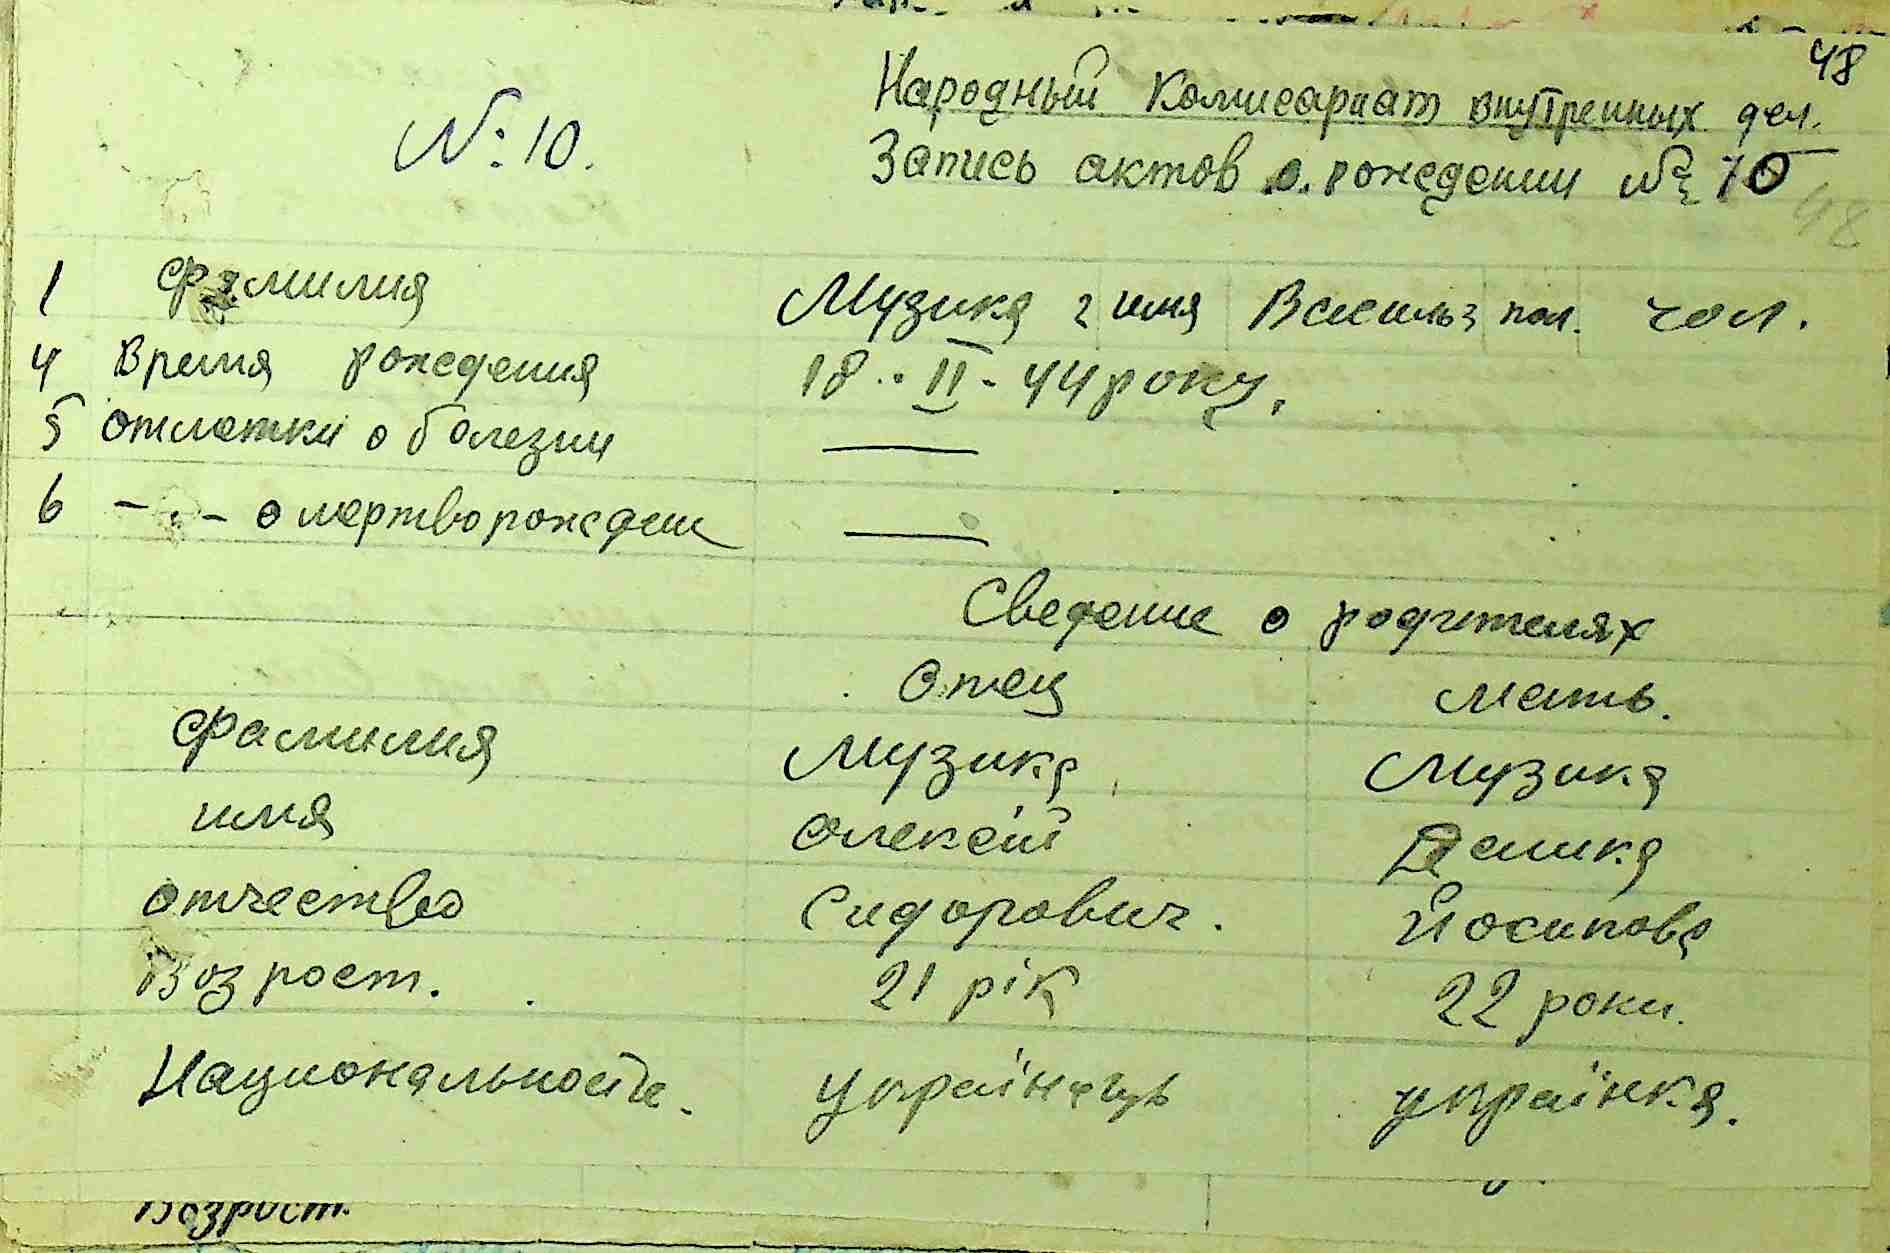 48
Народный Комисариат внутренных дел.
№ 10.
Запись актов о рождении № 10
48
1 фамилия Музика 2 имя Василь 3 пол. чол.
4 Время рождения 18.. II - 44 року.
5 отметки о болезни —
6 - . - о мертворожден —
Сведение о родителях
Отец мать.
фамилия Музика Музика
имя Олексій
отчество Сидорович. Йосипова
Возраст. 21 рік 22 роки.
Национальность. українець українка.
Возраст.